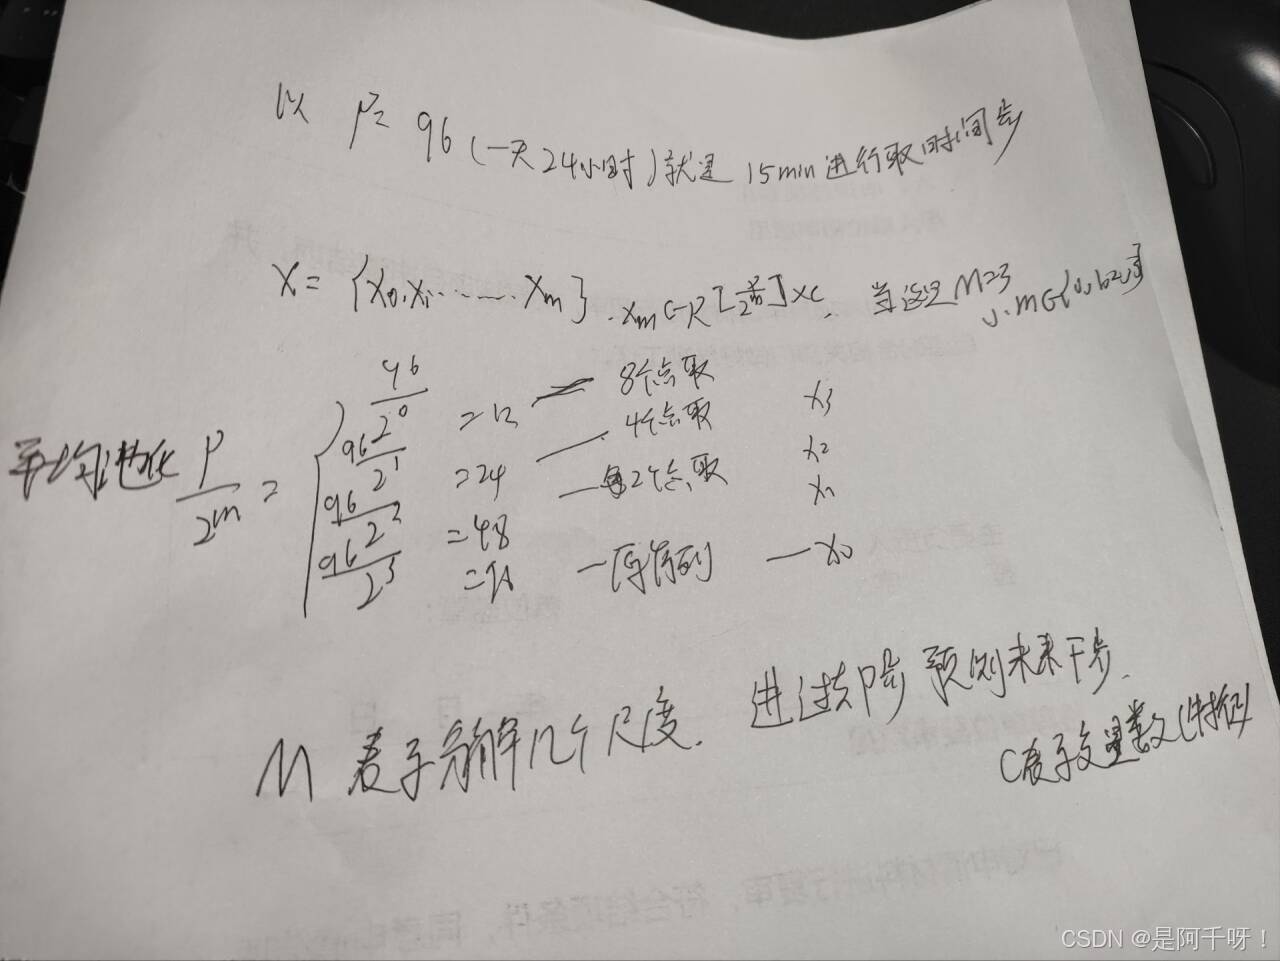 以 P= 96 (一天24小时)就是 15min进行取时间步
X = {x0,x1......xm}. xm∈R[P/2^m]×C. 当这里M=3
m∈{0,1,2,3}
平均池化 P/2^m =
96/2^0 =12 — 8个点取 x3
96/2^1 =24 — 4个点取 x2
96/2^2 =48 — 每2个点取 x1
96/2^3 =96 — 原序列 — x0
M 表示分解几个尺度. 进过去P步 预测未来F步.
C表示变量数(特征)
CSDN @是阿千呀!